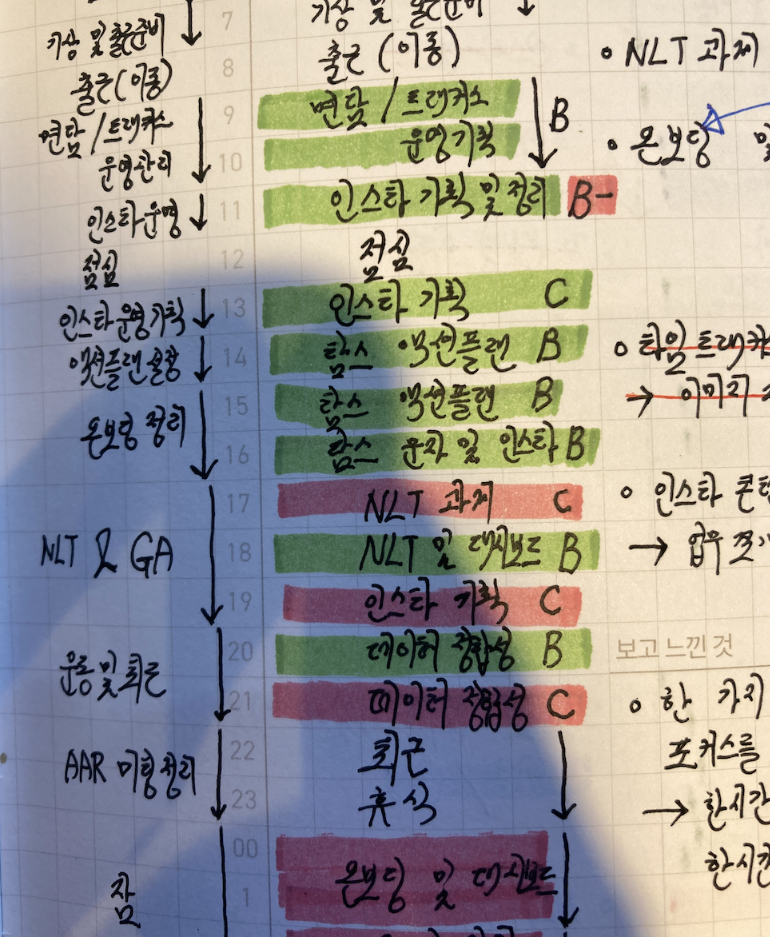 7
기상 및 출근준비
기상 및 출근준비
8
출근(이동)
출근(이동)
NLT 과제
9
면담/트래커스
면담/트래커스
B
10
운영관리
운영기획
온보딩 및
11
인스타운영
인스타 기획 및 정리 B-
12
점심
점심
13
인스타운영기획
인스타 기획 C
14
액션플랜설정
탐스 액션플랜 B
타임트래커
15
온보딩 정리
탐스 액션플랜 B
→ 이미지
16
탐스 문자 및 인스타 B
17
NLT 과제 C
인스타
18
NLT & GA
NLT 및 대시보드 B
→ 업무
19
인스타 기획 C
20
운동 및 퇴근
데이터 정합성 B
보고 느낀 것
21
데이터 정합성 C
한 가지
22
AAR 미형정리
퇴근
포커스를
23
휴식
→ 한시간
00
한시간
1
잠
온보딩 및 대시보드